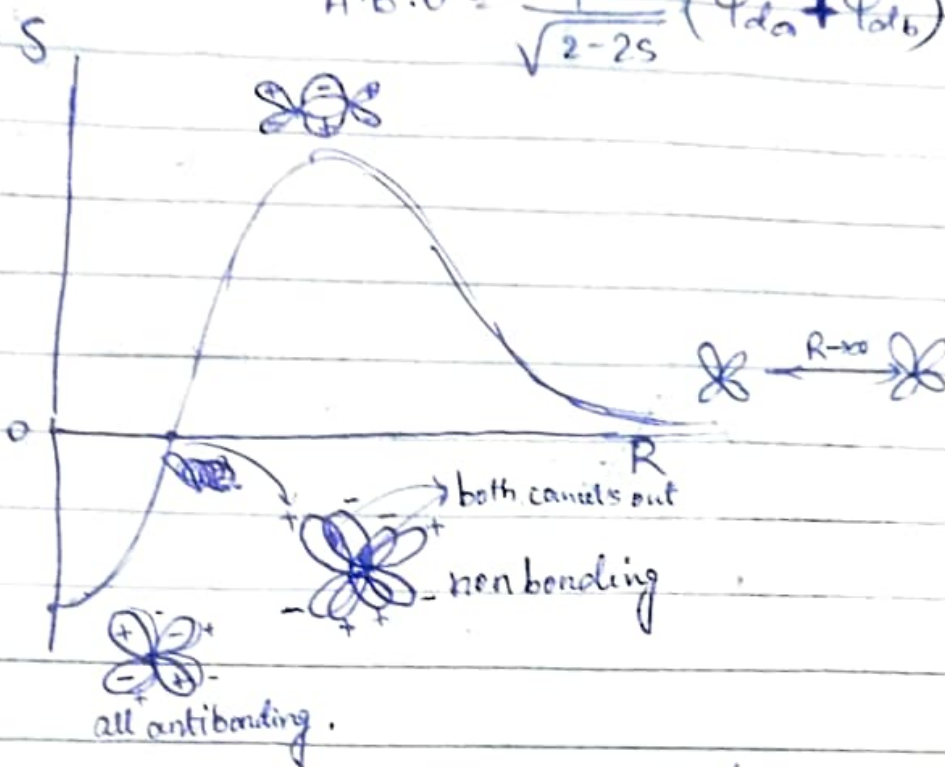 A.B.O = 1/√(2-2S) (Ψda + Ψdb)
S
- +
+ +
R→∞
0
R
+ - - +
both cancels out
- + + - nonbonding
+ - - +
- + + -
all antibonding.